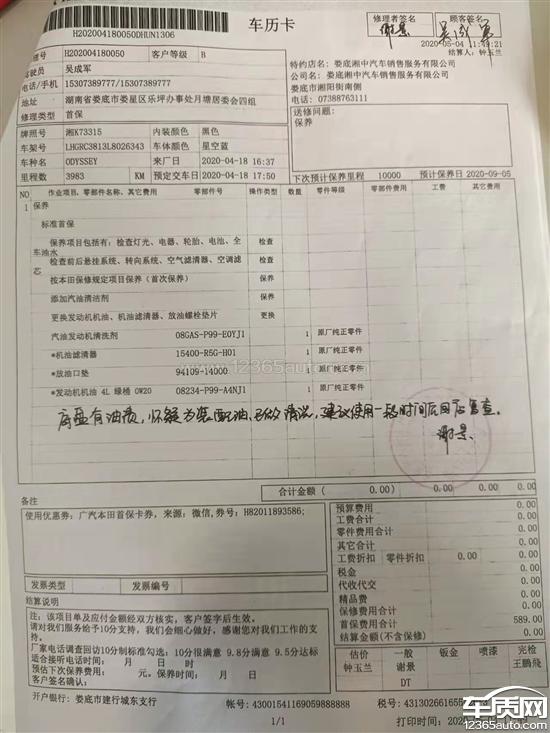 H202004180050DHUN1306
车历卡
修理者签名
顾客签名
谢景
2020-05-04 11:49:21
结算人: 钟玉兰
H202004180050 客户等级 B
吴成军
电话/手机 15307389777/15307389777
地址 湖南省娄底市娄星区乐坪办事处月塘居委会四组
修理类型 首保
特约店名: 娄底湘中汽车销售服务有限公司
公司名: 娄底湘中汽车销售服务有限公司
娄底市湘阳街南侧
电话: 07388763111
送修问题:
保养
牌照号 湘K73315 内装颜色 黑色
车架号 LHGRC3813L8026343 车体颜色 星空蓝
车种名 ODYSSEY 来厂日 2020-04-18 16:37
里程数 3983 KM 预定交车日 2020-04-18 17:50
下次预计保养里程 10000 预计保养日 2020-09-05
NO 作业项目、零部件名称、其它费用 零部件号 操作类型 数量 零件等级 零部件费用 工费 其它费用
1 保养
标准首保
保养项目包括有: 检查灯光、电器、轮胎、电池、全车油水 检查
检查前后悬挂系统、转向系统、空气滤清器、空调滤芯 检查
按本田保修规定项目保养(首次保养) 保养
添加汽油清洁剂 保养
更换发动机机油、机油滤清器、放油螺栓垫片 更换
汽油发动机清洗剂 08GAS-P99-E0YJ1 1 原厂纯正零件
*机油滤清器 15400-R5G-H01 1 原厂纯正零件
*放油口垫 94109-14000 1 原厂纯正零件
*发动机机油 4L 绿桶 0W20 08234-P99-A4NJ1 1 原厂纯正零件
www.12365auto.com
底盘有油质,怀疑为装配油,已做清洗,建议使用一段时间后回店复查。
谢景
合计金额 ( 0.00) 0.00 0.00 0.00
备注
使用优惠券: 广汽本田首保卡券, 来源: 微信, 券号: H82011893586;
预算费用 0.00
工费合计 0.00
零件费用合计 0.00
其它合计 0.00
工费折扣 零件折扣 0.00 0.00
税金 0.00
代收代交 0.00
精品费 0.00
保修费用合计 0.00
首保费用合计 589.00
结算金额(不含保修) 0.00
发票类型 发票编号
结算说明
注: 该项目单及应付金额经双方核实, 客户签字后生效。
请对我们服务给予10分支持, 我们会细心做好, 感谢您对我们工作的支持。
厂家电话调查回访10分制标准勾选: 10分很满意 9.8分满意 9.5分达标
适合接听电话时间: 月 日 时
预估下次保养费用: 元。保养时间: 月 日
客户签名确认:
估价 一般 钣金 喷漆 完检
钟玉兰 谢景 王鹏飞
DT
开户银行: 娄底市建行城东支行 帐号: 43001541169059888888
1/1
打印时间:
车质网
www.12365auto.com